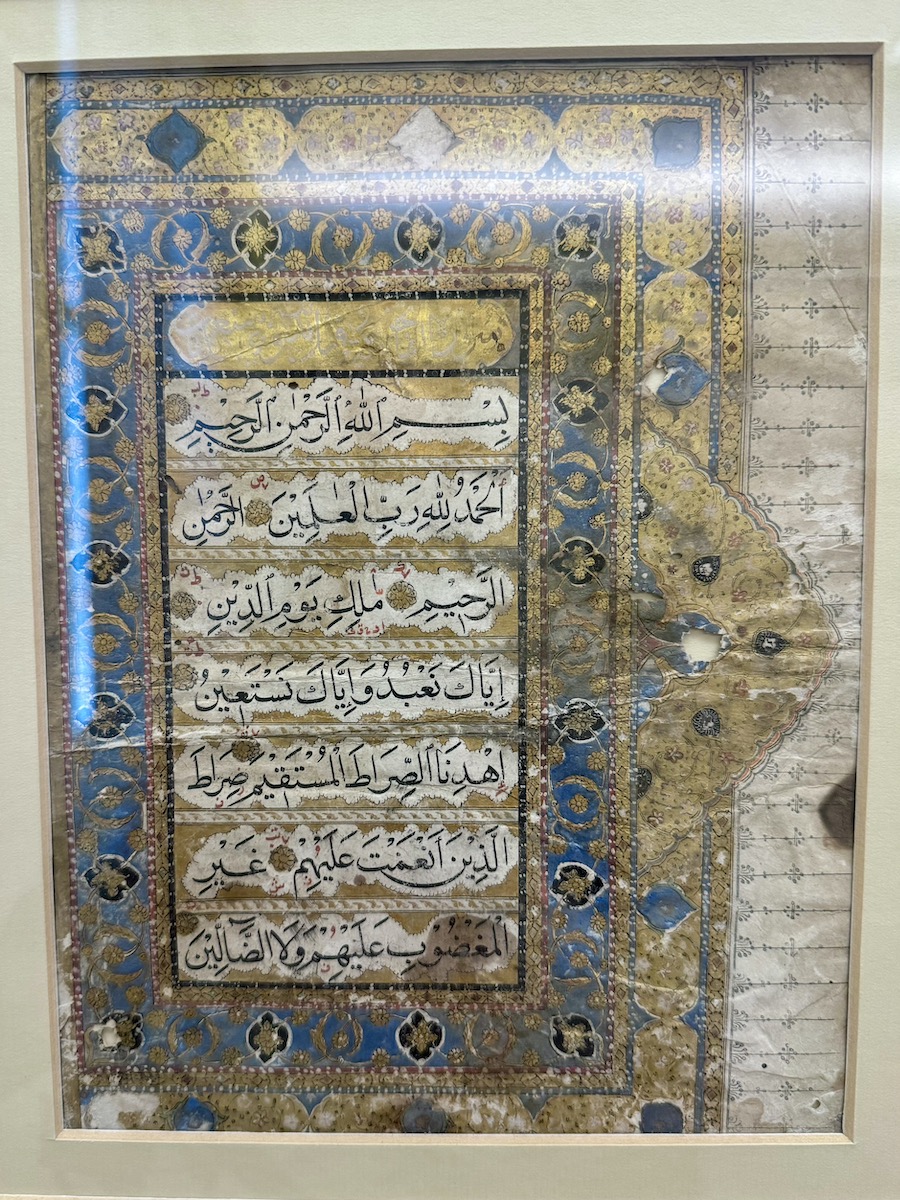 بِسْمِ ٱللّٰهِ ٱلرَّحْمٰنِ ٱلرَّحِيمِ
ٱلْحَمْدُ لِلّٰهِ رَبِّ الْعٰلَمِيْنَ الرَّحْمٰنِ
الرَّحِيْمِ مٰلِكِ يَوْمِ الدِّيْنِ
اِيَّاكَ نَعْبُدُ وَاِيَّاكَ نَسْتَعِيْنُ
اِهْدِنَا الصِّرَاطَ الْمُسْتَقِيْمَ صِرَاطَ
الَّذِيْنَ اَنْعَمْتَ عَلَيْهِمْ غَيْرِ
الْمَغْضُوْبِ عَلَيْهِمْ وَلَا الضَّآلِّيْنَ